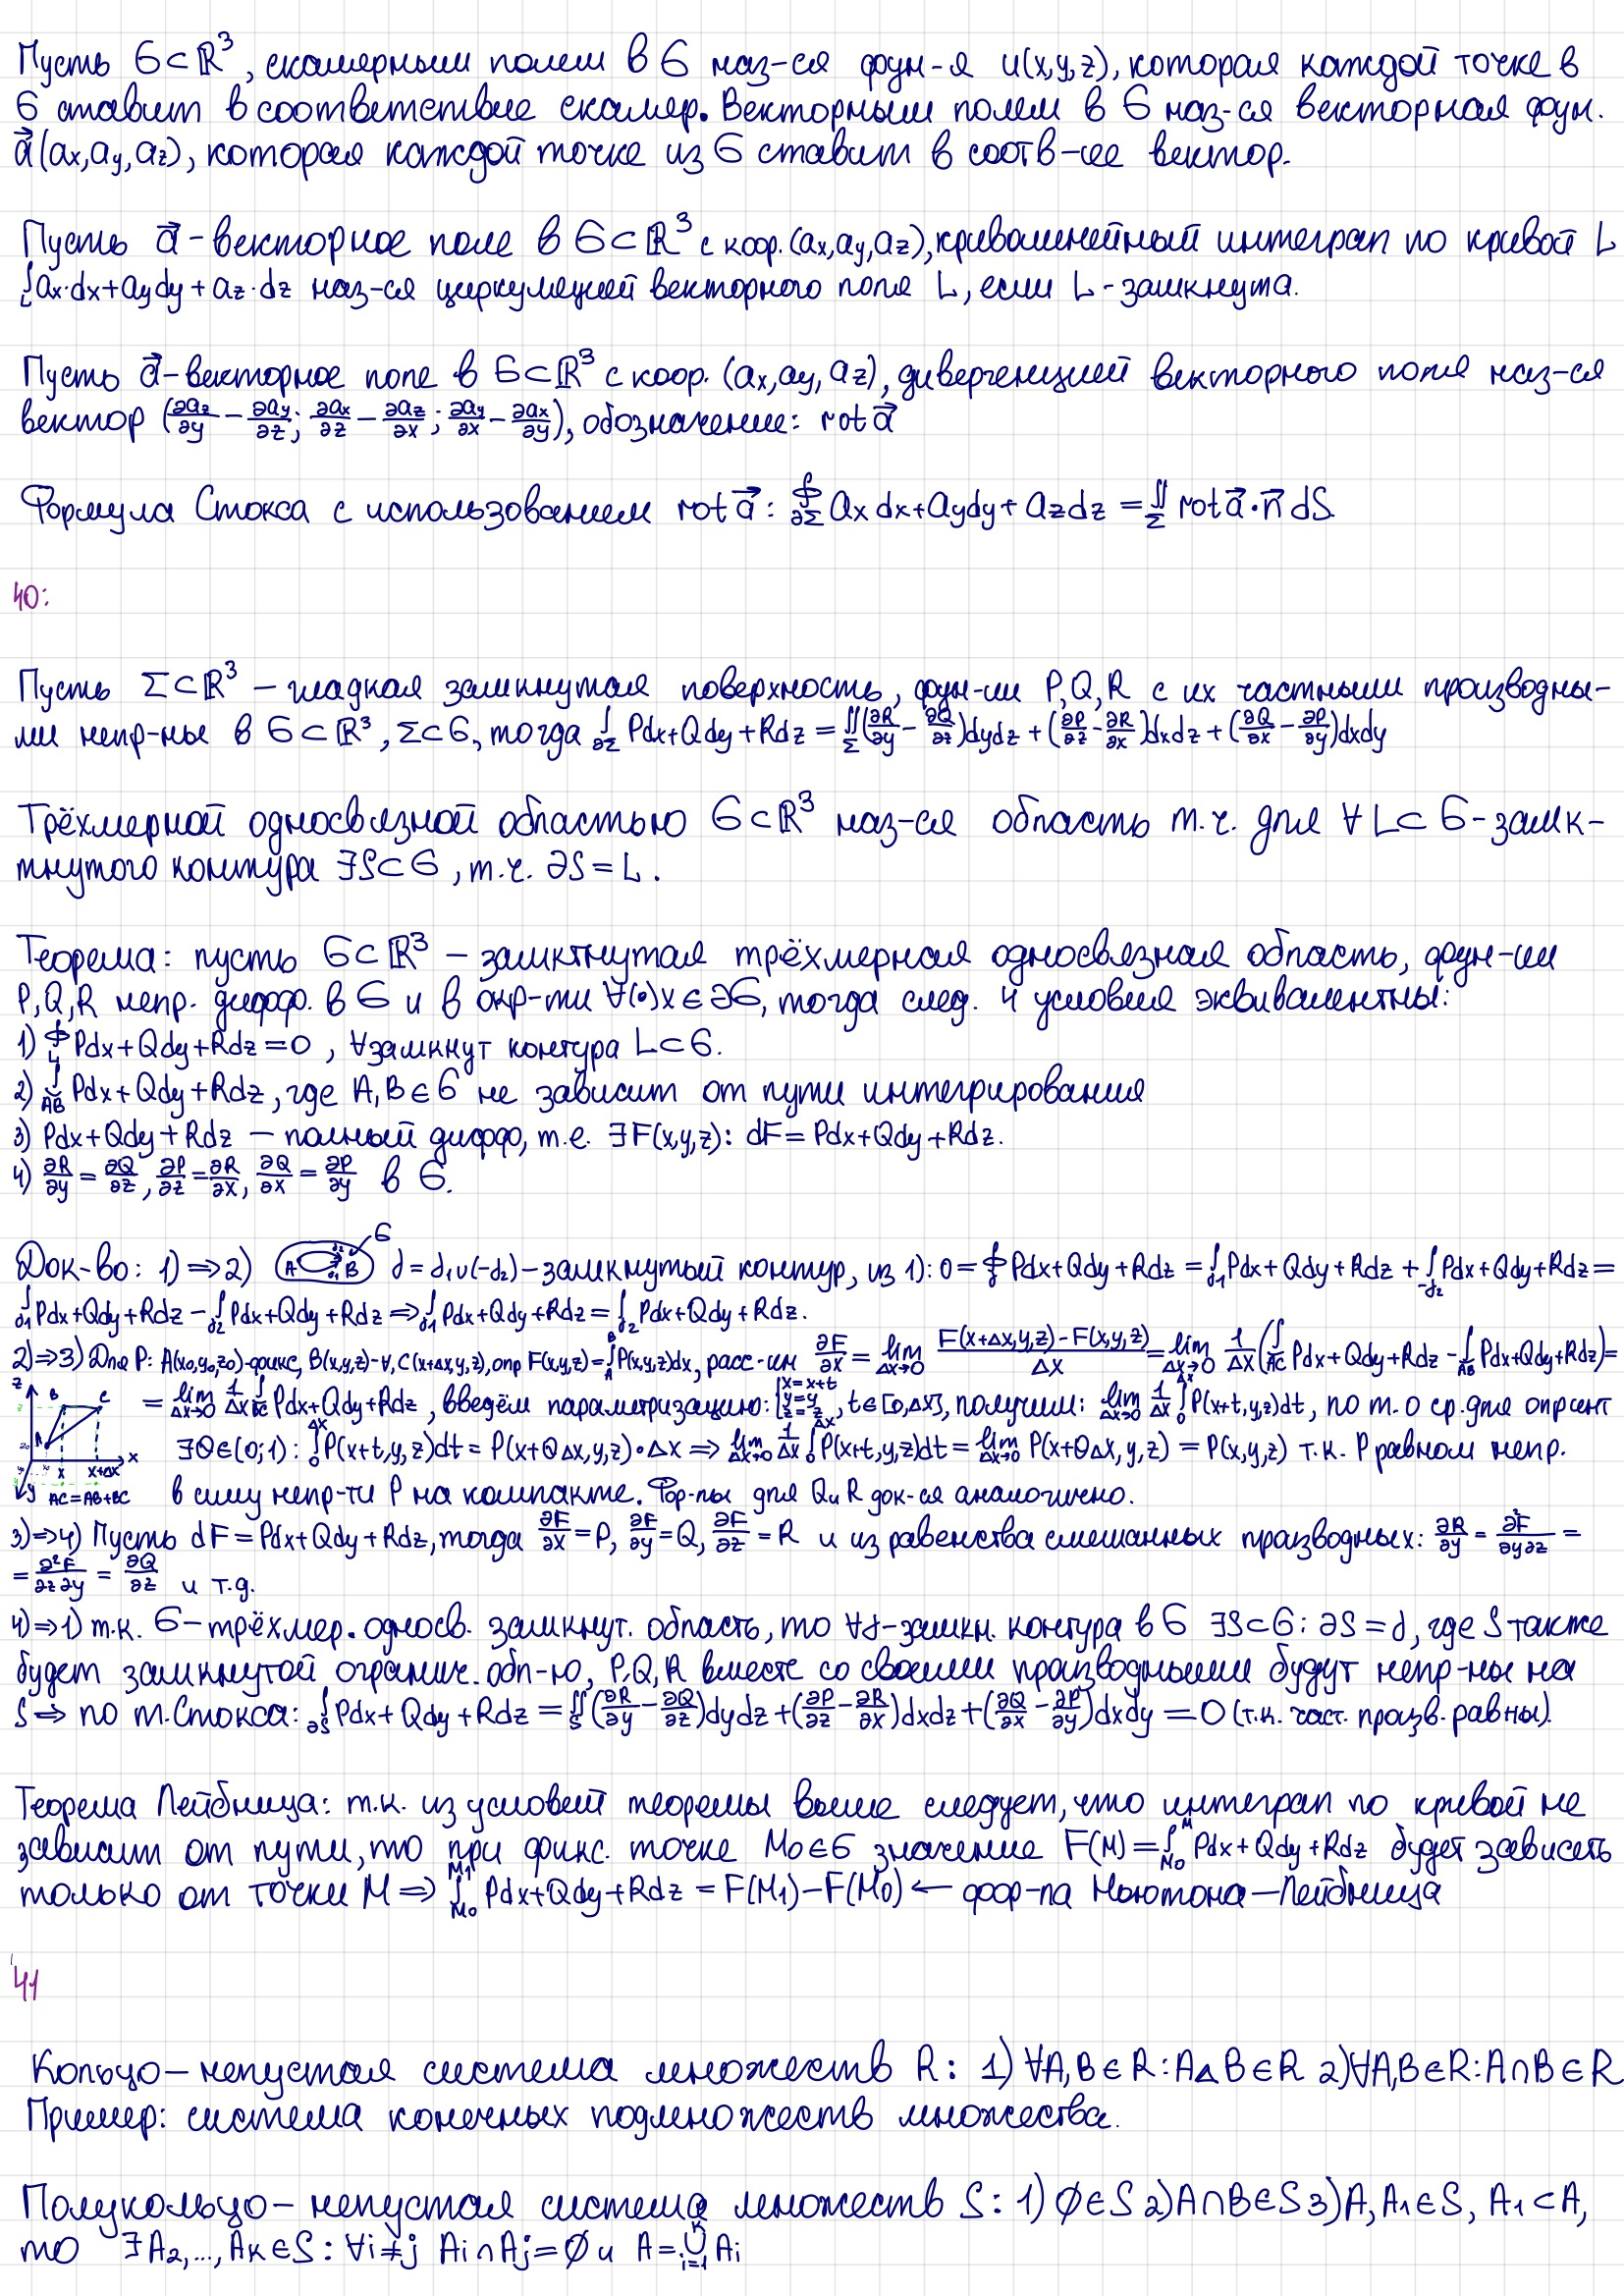 Пусть G⊂ℝ³, скалярным полем в G наз-ся фун-я u(x,y,z), которая каждой точке в
G ставит в соответствие скаляр. Векторным полем в G наз-ся векторная фун.
a⃗(ax,ay,az), которая каждой точке из G ставит в соотв-ие вектор.
Пусть a⃗ - векторное поле в G⊂ℝ³ с коор. (ax,ay,az), криволинейный интеграл по кривой L
∫_L ax·dx+aydy+az·dz наз-ся циркуляцией векторного поля L, если L - замкнута.
Пусть a⃗ - векторное поле в G⊂ℝ³ с коор. (ax,ay,az), дивергенцией векторного поля наз-ся
вектор (∂az/∂y - ∂ay/∂z; ∂ax/∂z - ∂az/∂x; ∂ay/∂x - ∂ax/∂y), обозначение: rot a⃗
Формула Стокса с использованием rot a⃗: ∮_∂Σ ax dx+aydy+azdz = ∬_Σ rot a⃗·n⃗ dS
40:
Пусть Σ⊂ℝ³ – гладкая замкнутая поверхность, фун-ии P,Q,R с их частными производны-
ми непр-ны в G⊂ℝ³, Σ⊂G, тогда ∫_∂Σ Pdx+Qdy+Rdz = ∬_Σ (∂R/∂y - ∂Q/∂z)dydz + (∂P/∂z - ∂R/∂x)dxdz + (∂Q/∂x - ∂P/∂y)dxdy
Трёхмерной односвязной областью G⊂ℝ³ наз-ся область т.ч. для ∀L⊂G - замк-
тнутого контура ∃S⊂G, т.ч. ∂S = L.
Теорема: пусть G⊂ℝ³ – замктнутая трёхмерная односвязная область, фун-ии
P,Q,R непр. дифф. в G и в окр-ти ∀(·)x∈∂G, тогда след. 4 условия эквивалентны:
1) ∮_L Pdx+Qdy+Rdz=0, ∀замкнут контура L⊂G.
2) ∫_AB Pdx+Qdy+Rdz, где A,B∈G не зависит от пути интегрирования
3) Pdx+Qdy+Rdz – полный дифф, т.е. ∃F(x,y,z): dF=Pdx+Qdy+Rdz.
4) ∂R/∂y = ∂Q/∂z, ∂P/∂z = ∂R/∂x, ∂Q/∂x = ∂P/∂y в G.
Док-во: 1)⇒2) A B γ1 γ2 G γ = γ1∪(-γ2) – замкнутый контур, из 1): 0 = ∮_γ Pdx+Qdy+Rdz = ∫_γ1 Pdx+Qdy+Rdz + ∫_-γ2 Pdx+Qdy+Rdz =
∫_γ1 Pdx+Qdy+Rdz - ∫_γ2 Pdx+Qdy+Rdz ⇒ ∫_γ1 Pdx+Qdy+Rdz = ∫_γ2 Pdx+Qdy+Rdz.
2)⇒3) Для P: A(x0,y0,z0)-фикс, B(x,y,z)-∀, C(x+Δx,y,z), опр F(x,y,z)=∫_A^B P(x,y,z)dx, расс-им ∂F/∂x = lim_Δx→0 (F(x+Δx,y,z)-F(x,y,z))/Δx = lim_Δx→0 1/Δx (∫_AC Pdx+Qdy+Rdz - ∫_AB Pdx+Qdy+Rdz)=
= lim_Δx→0 1/Δx ∫_BC Pdx+Qdy+Rdz, введём параметризацию: {x=x+t y=y z=z, t∈[0,Δx], получим: lim_Δx→0 1/Δx ∫_0^Δx P(x+t,y,z)dt, по т. о ср. для опр снт
∃Θ∈(0;1): ∫_0^Δx P(x+t,y,z)dt = P(x+ΘΔx,y,z)·Δx ⇒ lim_Δx→0 1/Δx ∫_0^Δx P(x+t,y,z)dt = lim_Δx→0 P(x+ΘΔx,y,z) = P(x,y,z) т.к. P равном непр.
z B C A x x+Δx x y AC=AB+BC
в силу непр-ти P на компакте. Фор-лы для Q и R док-ся аналогично.
3)⇒4) Пусть dF=Pdx+Qdy+Rdz, тогда ∂F/∂x=P, ∂F/∂y=Q, ∂F/∂z=R и из равенства смешанных празводных: ∂R/∂y = ∂²F/∂y∂z =
= ∂²F/∂z∂y = ∂Q/∂z и т.д.
4)⇒1) т.к. G – трёхмер. односв. замкнут. область, то ∀γ-замкн. контура в G ∃S⊂G: ∂S=γ, где S также
будет замкнутой огранич. обл-ю, P,Q,R вместе со своими празводными будут непр-ны на
S ⇒ по т. Стокса: ∫_∂S Pdx+Qdy+Rdz = ∬_S (∂R/∂y - ∂Q/∂z)dydz + (∂P/∂z - ∂R/∂x)dxdz + (∂Q/∂x - ∂P/∂y)dxdy = 0 (т.к. част. произв. равны).
Теорема Лейбница: т.к. из условий теоремы выше следует, что интеграл по кривой не
зависит от пути, то при фикс. точке M0∈G значение F(M)=∫_M0^M Pdx+Qdy+Rdz будет зависеть
только от точки M ⇒ ∫_M0^M1 Pdx+Qdy+Rdz = F(M1)-F(M0) ← фор-ла Ньютона-Лейбница
41
Кольцо – непустая система множеств R: 1) ∀A,B∈R: A△B∈R 2) ∀A,B∈R: A∩B∈R
Пример: система конечных подмножеств множества.
Полукольцо – непустая система множеств S: 1) ∅∈S 2) A∩B∈S 3) A,A1∈S, A1⊂A,
то ∃A2,...,Ak∈S: ∀i≠j Ai∩Aj=∅ и A=⋃_{i=1}^k Ai